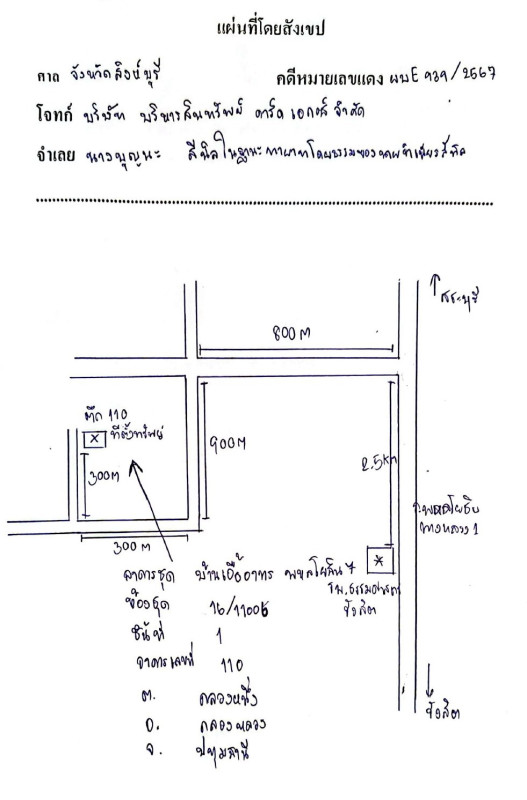 แผ่นที่โดยสังเขป
ศาล จังหวัดสิงห์บุรี คดีหมายเลขแดง ผบE 939/2567
โจทก์ บริษัท บริหารสินทรัพย์ คาร์ด เอกซ์ จำกัด
จำเลย นางบุญนะ สีนิล ในฐานะทายาทโดยธรรมของ
สระบุรี
800 M
ตึก 110
ที่ตั้งทรัพย์
900M
300M
2.5km
ถ.พหลโยธิน
ทางหลวง 1
300 M
อาคารชุด บ้านเอื้ออาทร พหลโยธิน
รพ.ธรรมศาสตร์
รังสิต
ห้องชุด 16/11005
ชั้นที่ 1
อาคารเลขที่ 110
ต. คลองหนึ่ง
อ. คลองหลวง
จ. ปทุมธานี
รังสิต